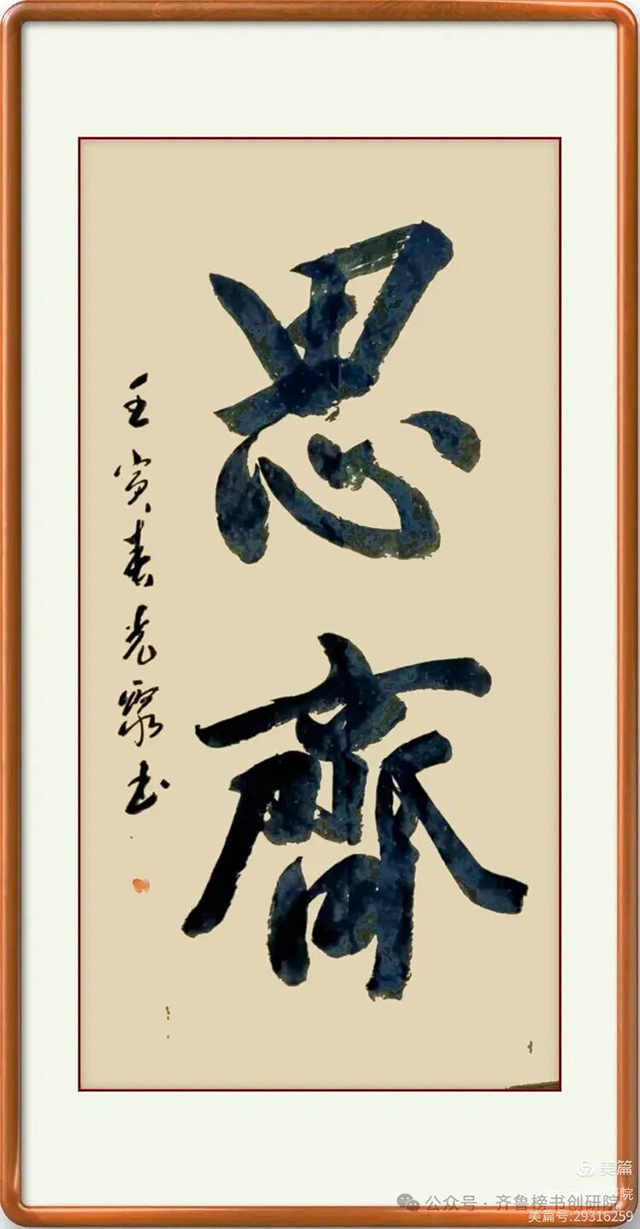 思齊
壬寅春光聚书
美篇
公众号·齐鲁榜书创研院
美篇号:29316259